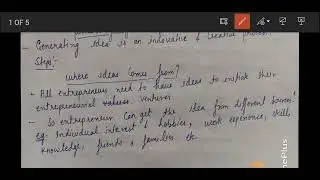 1 OF 5
- Generating idea is an innovative & creative process.
Steps:-
where ideas comes from?
- All entrepreneurs need to have ideas to initiate their
entrepreneurial values. ventures
- So entrepreneur can get the idea from different sources!
eg: Individual interest & hobbies, work experience, skills,
knowledge, friends & families etc
nePlus